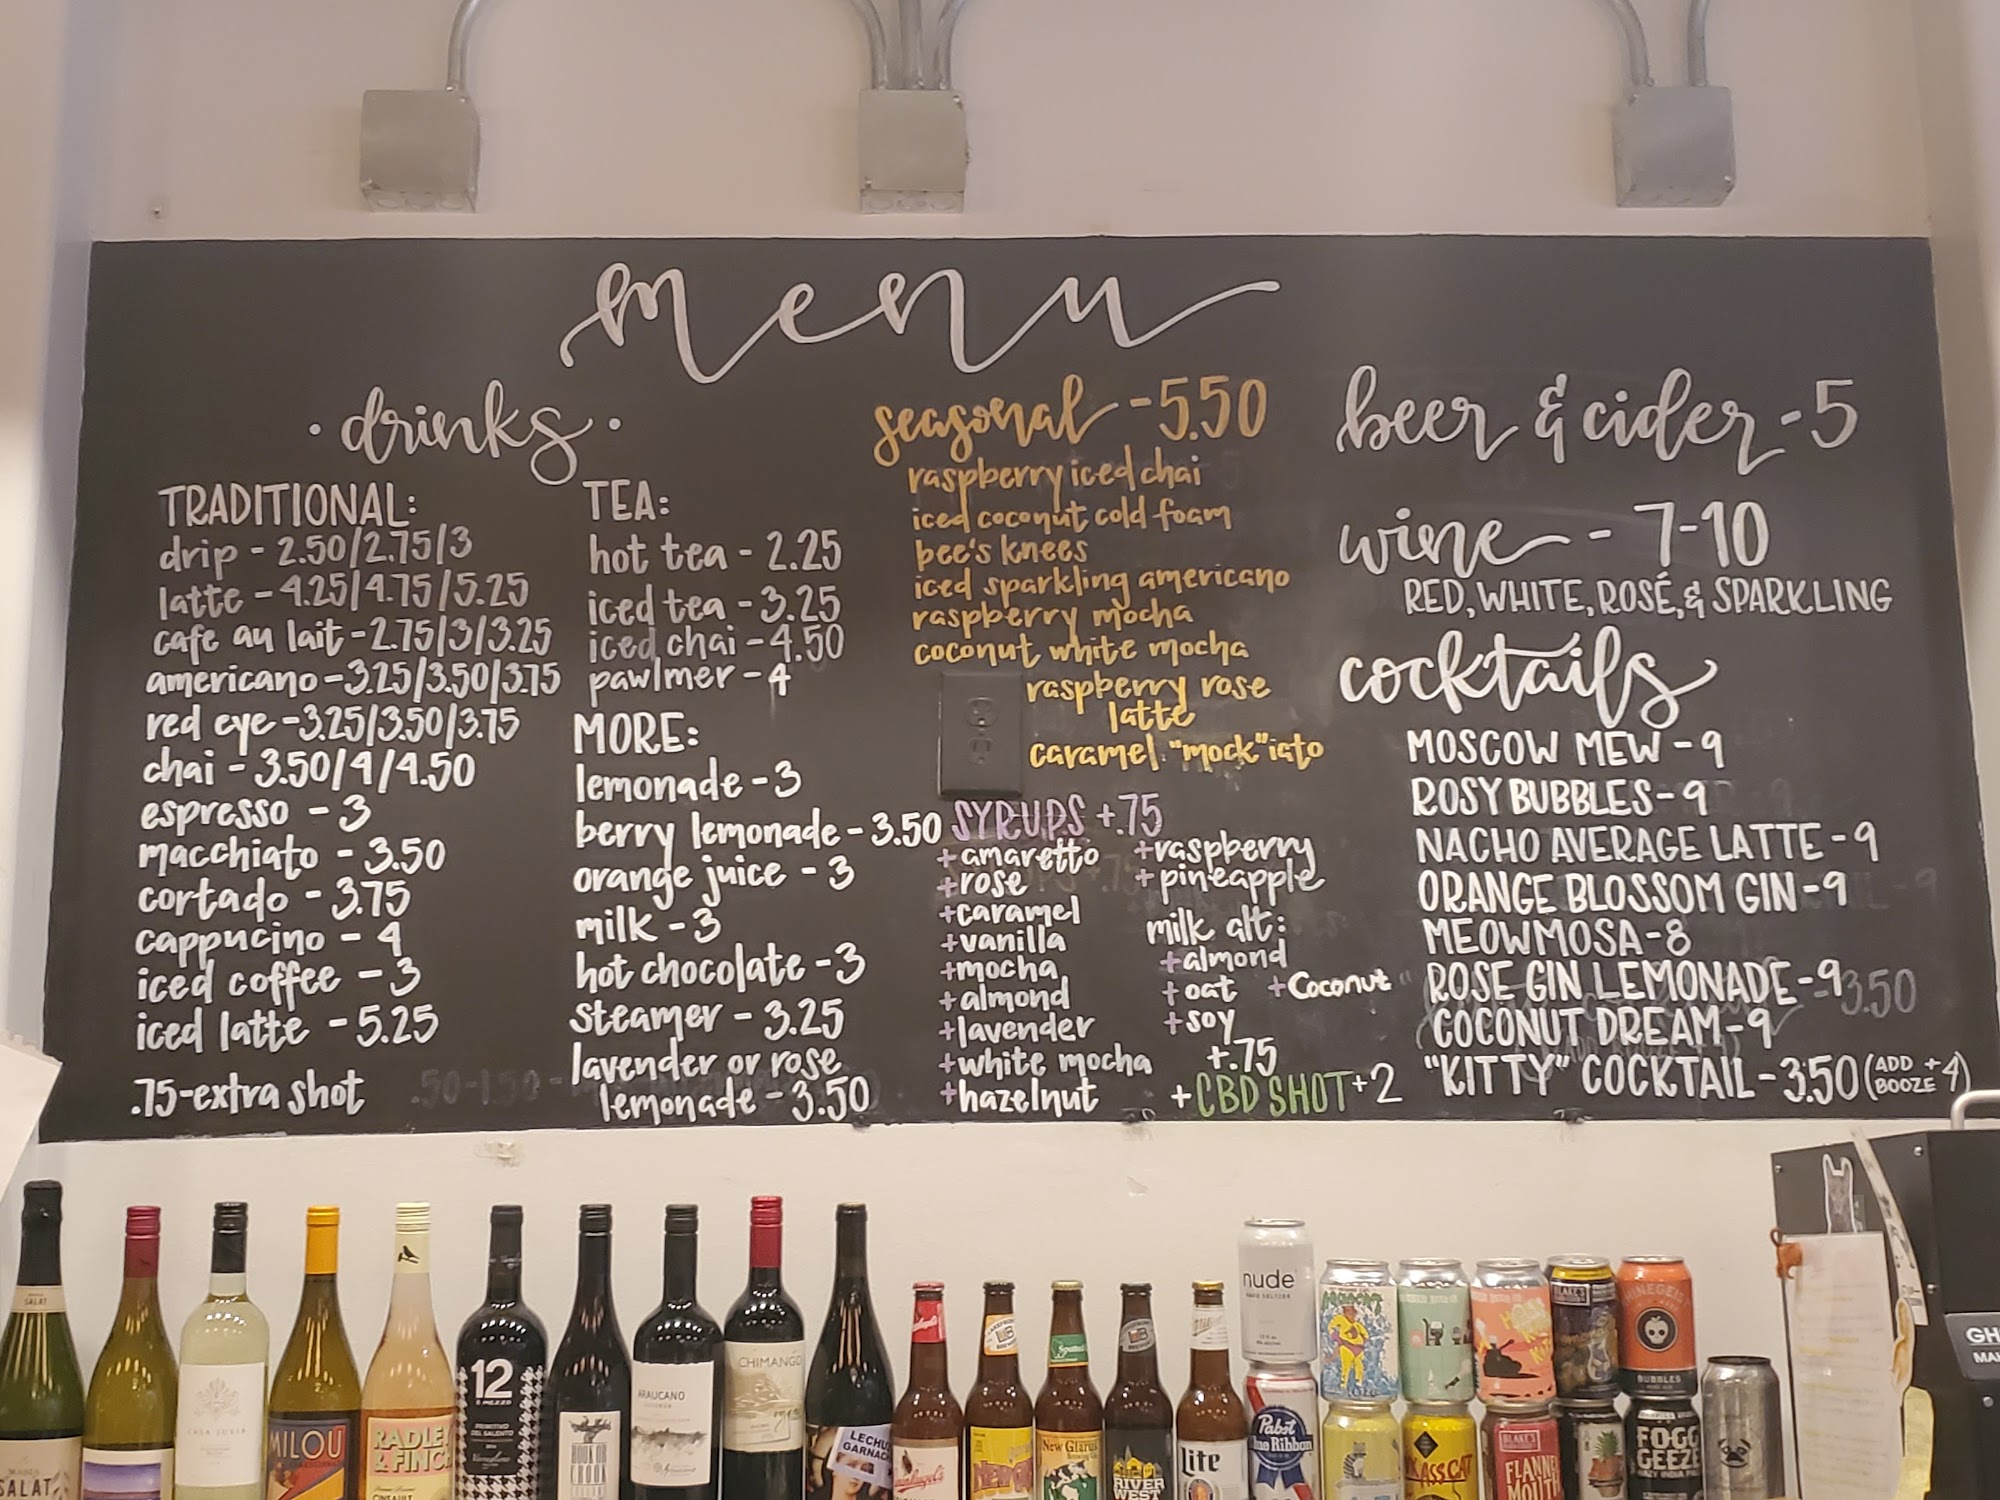 menu
· drinks ·
TRADITIONAL:
drip - 2.50/2.75/3
latte - 4.25/4.75/5.25
cafe au lait - 2.75/3/3.25
americano - 3.25/3.50/3.75
red eye - 3.25/3.50/3.75
chai - 3.50/4/4.50
espresso - 3
macchiato - 3.50
cortado - 3.75
cappucino - 4
iced coffee - 3
iced latte - 5.25
.75-extra shot
TEA:
hot tea - 2.25
iced tea - 3.25
iced chai - 4.50
pawlmer - 4
MORE:
lemonade - 3
berry lemonade - 3.50
orange juice - 3
milk - 3
hot chocolate - 3
steamer - 3.25
lavender or rose
lemonade - 3.50
seasonal - 5.50
raspberry iced chai
iced coconut cold foam
bee's knees
iced sparkling americano
raspberry mocha
coconut white mocha
raspberry rose
latte
caramel "mock"iato
SYRUPS +.75
+amaretto
+rose
+caramel
+vanilla
+mocha
+almond
+lavender
+white mocha
+hazelnut
+raspberry
+pineapple
milk alt:
+almond
+oat +Coconut
+soy
+.75
+CBD SHOT +2
beer & cider - 5
wine - 7-10
RED, WHITE, ROSÉ, & SPARKLING
cocktails
MOSCOW MEW - 9
ROSY BUBBLES - 9
NACHO AVERAGE LATTE - 9
ORANGE BLOSSOM GIN - 9
MEOWMOSA - 8
ROSE GIN LEMONADE - 9
COCONUT DREAM - 9
"KITTY" COCKTAIL - 3.50 (ADD +4
BOOZE)
SALAT
CASA JULIA
MILOU
RADLEY
& FINCH
CINSAULT
12
E MEZZO
PRIMITIVO
DEL SALENTO
HOOK OR
CROOK
ARAUCANO
CHIMANGO
LECHUZA
GARNACHA
New Glarus
RIVER
WEST
Lite
nude
Pabst
Blue Ribbon
ASS CAT
BLAKE'S
FLANNEL
MOUTH
RHINEGEIST
BUBBLES
FOGGY
GEEZER